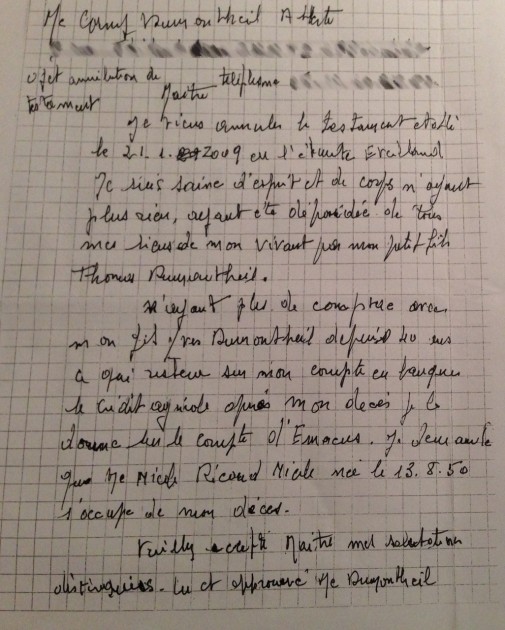 Me Dumontheil
objet annulation de
testament
Maitre téléphone
Je viens annuler le testament etabli
le 21.1.2009 en l'étude
Je suis saine d'esprit et de corps n'ayant
plus rien, ayant été dépossédée de tous
mes biens de mon vivant par mon petit fils
Thomas Dumontheil.
N'ayant plus de compte avec
mon fils Yves Dumontheil depuis 40 ans
a qui restera sur mon compte en banque
le crédit agricole après mon deces je le
donne sur le compte d'Emaus. Je demande
que Me Nicole Ricoud née le 13.8.50
s'occupe de mon déces.
Veuillez accepté Maitre mes salutations
distinguées. Lu et approuvé Me Dumontheil